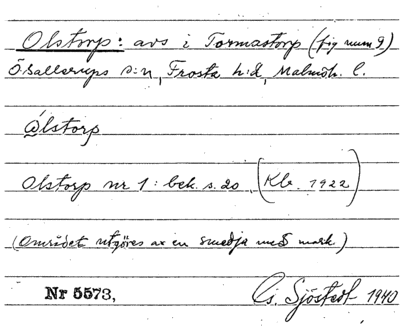 Olstorp: avs i Tormastorp (fig num 9)
Ö. Sallerups s:n, Frosta h:d, Malmöh. l.
Olstorp
Olstorp nr 1: bek. s. 20. (Kb. 1922)
(Området utgöres av en smedja med mark.)
Nr 5573, Cs. Sjöstedt 1940